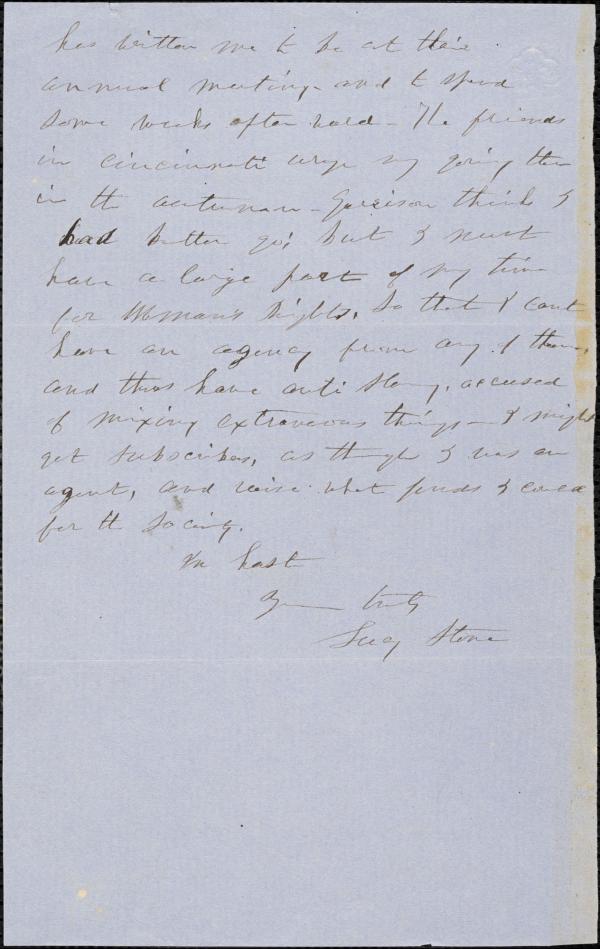 has written me to be at their
annual meeting - and to spend
some weeks after ward - The friends
in cincinnati urge my going there
in the autumn - Garrison thinks I
had better go; but I must
have a large part of my time
for Woman's Rights, so that I cant
have an agency from any of them,
and thus have anti slavery, accused
of mixing extraneous things - I might
get subscribers, as though I was an
agent, and raise what funds I could
for the society.
In haste
Yours truly
Lucy Stone